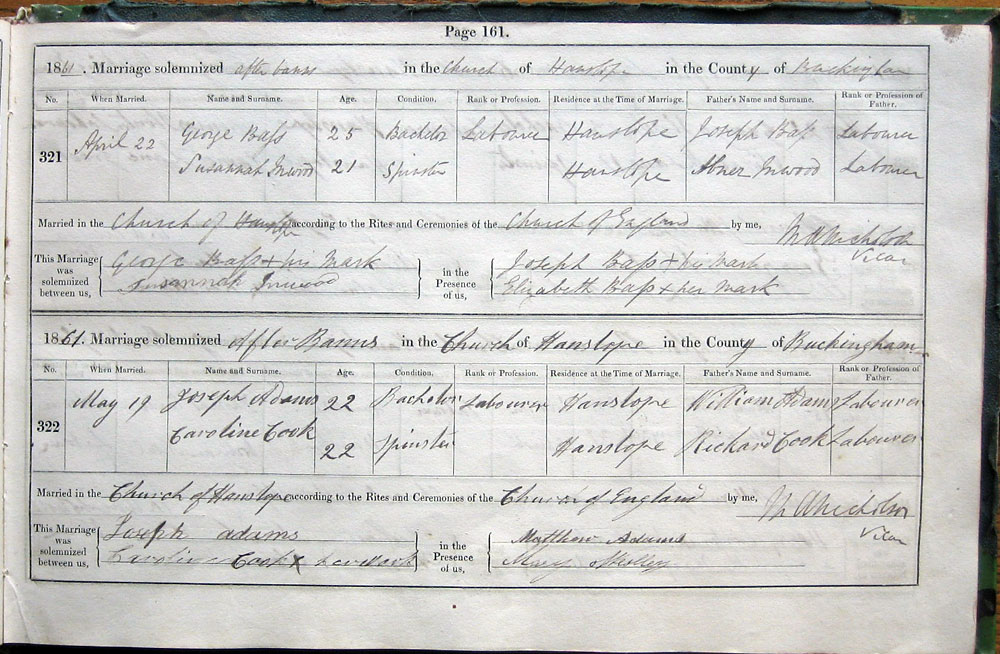 Page 161.
1861. Marriage solemnized after banns in the Church of Hanslope in the County of Buckingham
No. When Married. Name and Surname. Age. Condition. Rank or Profession. Residence at the Time of Marriage. Father's Name and Surname. Rank or Profession of Father.
321 April 22 George Bass 25 Bachelor Labourer Hanslope Joseph Bass Labourer
Susannah Inwood 21 Spinster Hanslope Abner Inwood Labourer
Married in the Church of Hanslope according to the Rites and Ceremonies of the Church of England by me,
Vicar
This Marriage was solemnized between us, George Bass + his Mark in the Presence of us, Joseph Bass + his Mark
Susannah Inwood Elizabeth Bass x her Mark
1861. Marriage solemnized After Banns in the Church of Hanslope in the County of Buckingham
No. When Married. Name and Surname. Age. Condition. Rank or Profession. Residence at the Time of Marriage. Father's Name and Surname. Rank or Profession of Father.
322 May 19 Joseph Adams 22 Bachelor Labourer Hanslope William Adams Labourer
Caroline Cook 22 Spinster Hanslope Richard Cook Labourer
Married in the Church of Hanslope according to the Rites and Ceremonies of the Church of England by me,
Vicar
This Marriage was solemnized between us, Joseph adams in the Presence of us, Matthew Adams
Caroline Cook x her Mark Mary